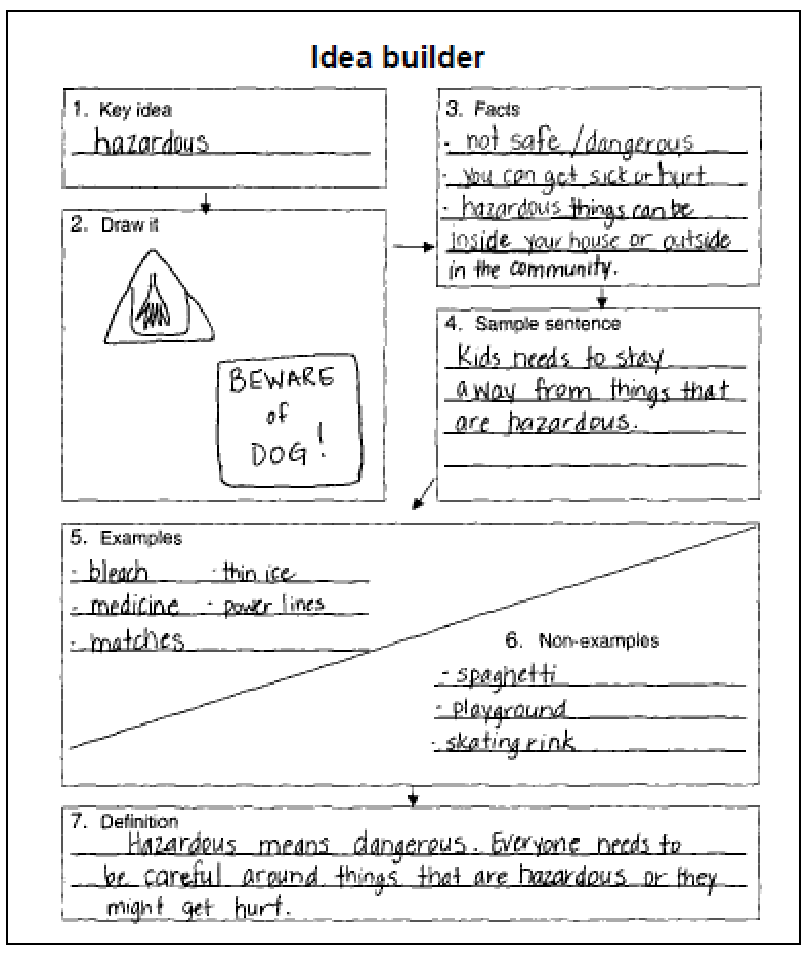 Idea builder
1. Key idea
hazardous
2. Draw it
BEWARE
of
DOG!
3. Facts
- not safe/dangerous
- you can get sick or hurt
- hazardous things can be
inside your house or outside
in the community.
4. Sample sentence
Kids needs to stay
away from things that
are hazardous.
5. Examples
- bleach - thin ice
- medicine - power lines
- matches
6. Non-examples
- spaghetti
- playground
- skating rink
7. Definition
Hazardous means dangerous. Everyone needs to
be careful around things that are hazardous or they
might get hurt.